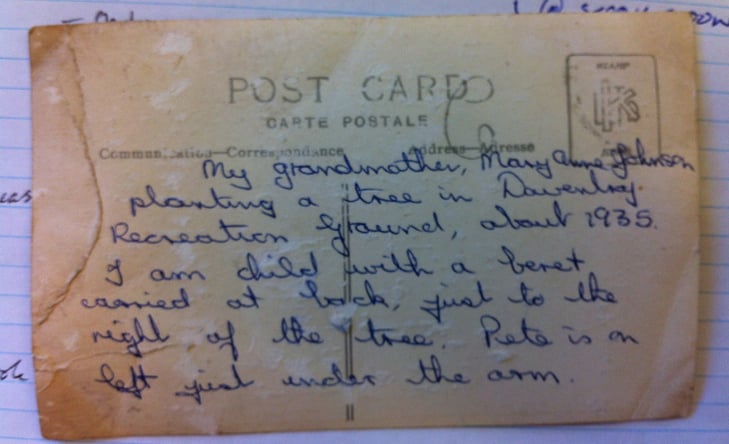 POST CARD
CARTE POSTALE
STAMP
K
Communication—Correspondance
Address—Adresse
My grandmother, Mary Anne Johnson
planting a tree in Daventry
Recreation Ground, about 1935.
I am child with a beret
carried at back, just to the
right of the tree. Pete is on
left just under the arm.